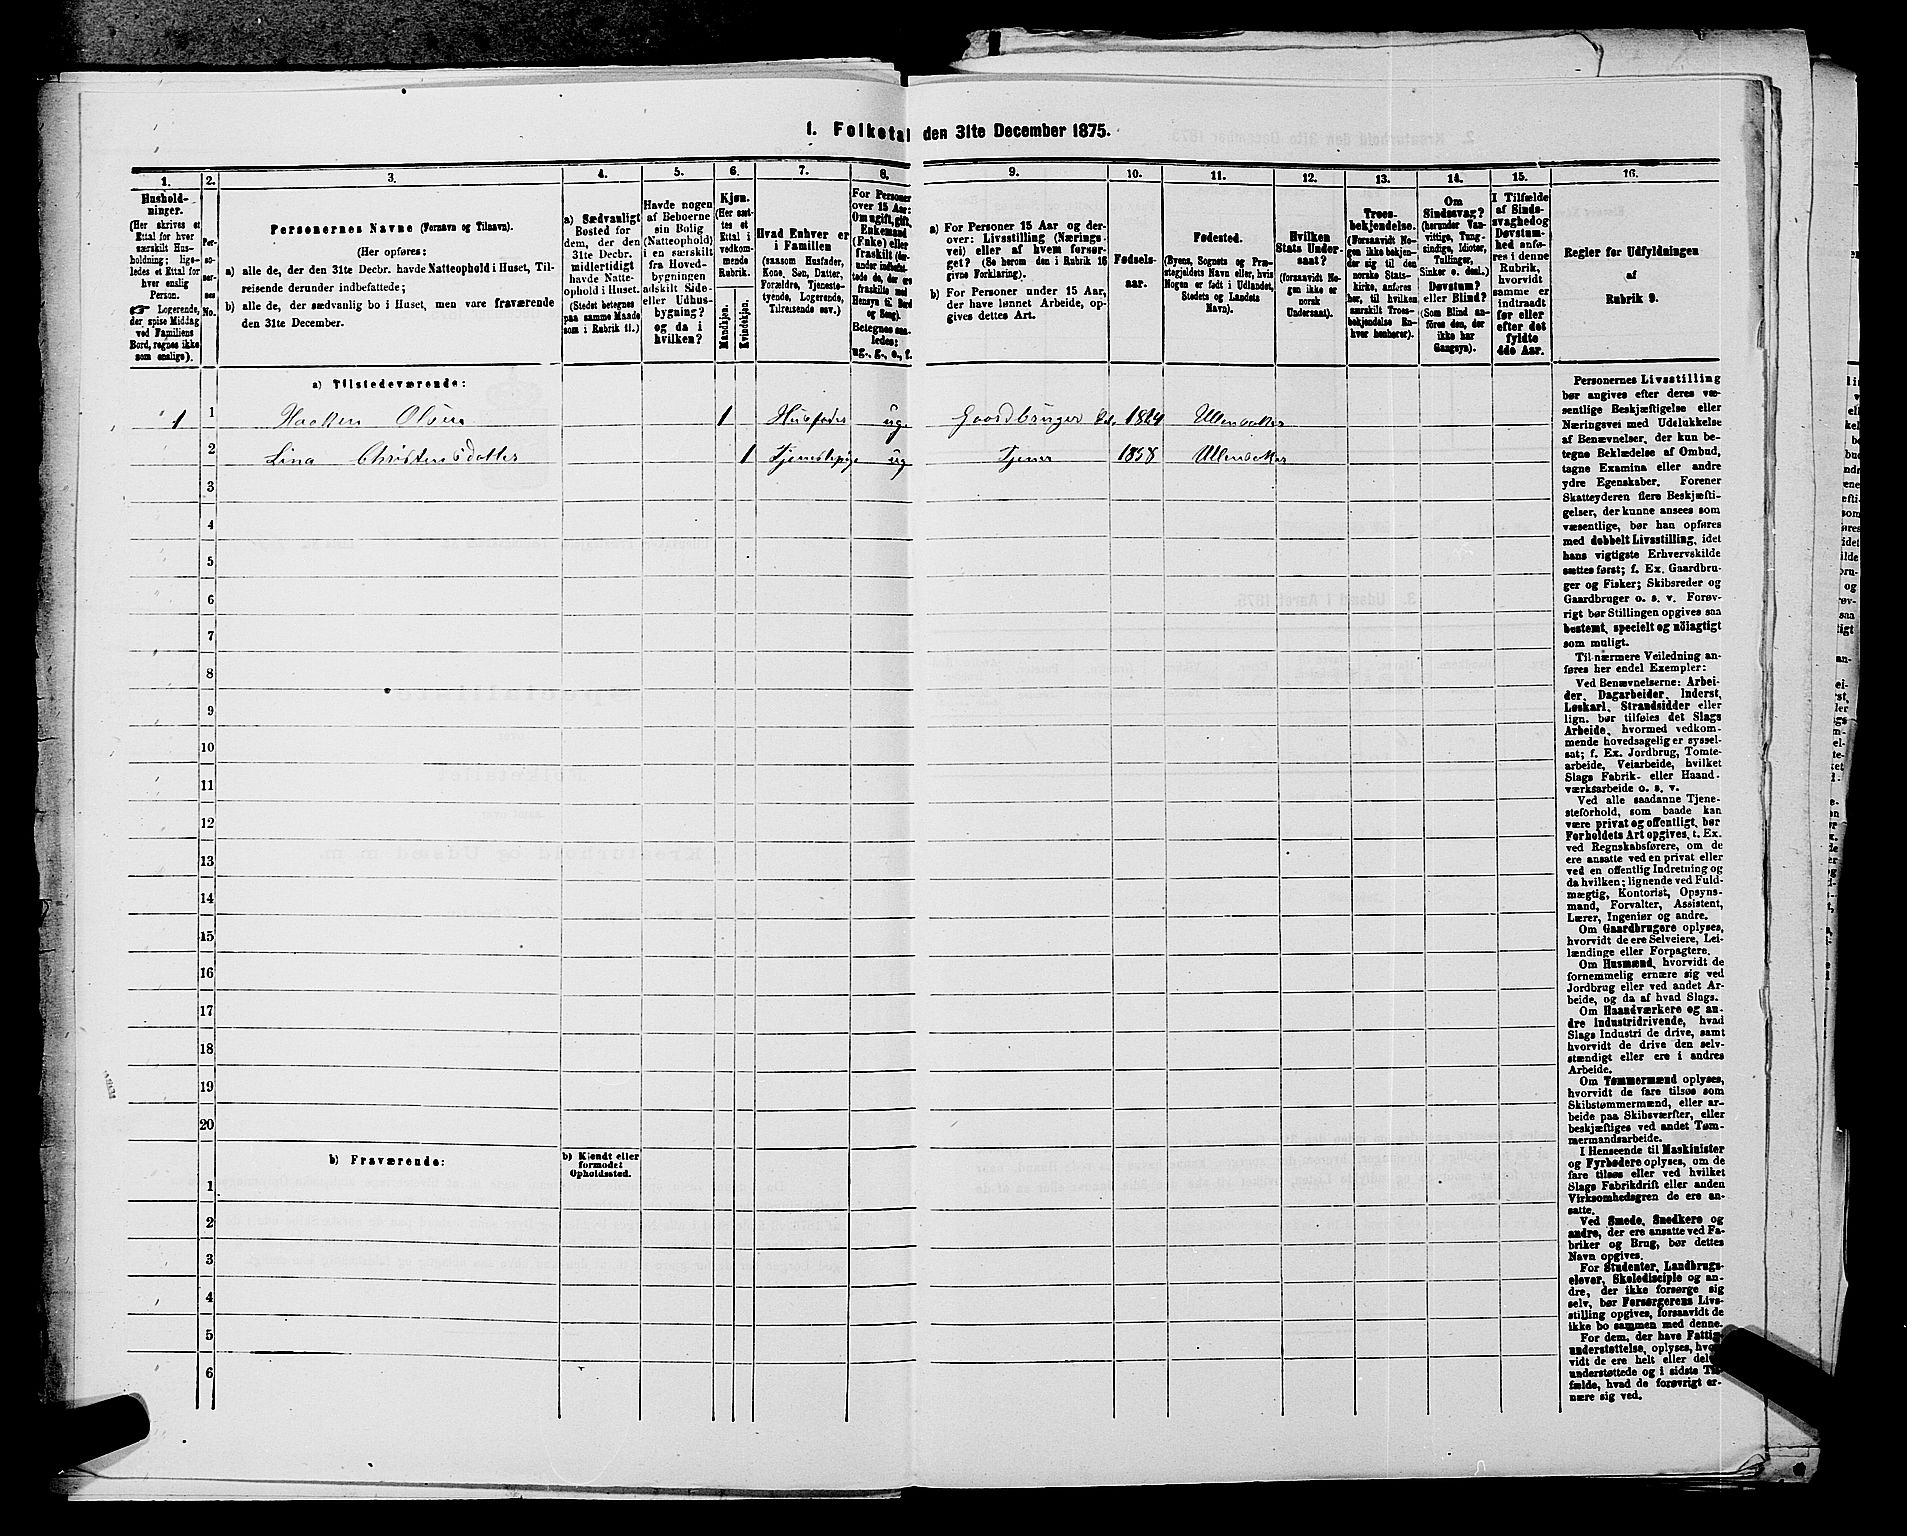 1. Folketal den 31te December 1875.
1.
2.
3.
4.
5.
6.
7.
8.
9.
10.
11.
12.
13.
14.
15.
16.
Hushold-
ninger.
(Her skrives et
Ettal for hver
særskilt Hus-
holdning; lige-
ledes et Ettal for
hver enslig
Person.
☞ Logerende,
der spise Middag
ved Familiens
Bord, regnes ikke
som enslige).
Per-
so-
ner-
nes
No.
Personernes Navne (Fornavn og Tilnavn).
(Her opføres:
a) alle de, der den 31te Decbr. havde Natteophold i Huset, Til-
reisende derunder indbefattede;
b) alle de, der sædvanlig bo i Huset, men vare fraværende
den 31te December.
a) Sædvanligt
Bosted for
dem, der den
31te Decbr.
midlertidigt
havde Natte-
ophold i Huset.
(Stedet betegnes
paa samme Maade
som i Rubrik 11.)
Havde nogen
af Beboerne
sin Bolig
(Natteophold)
i en særskilt
fra Hoved-
bygningen
adskilt Side-
eller Udhus-
bygning?
og da i
hvilken?
Kjøn.
(Her sæt-
tes et
Ettal i
vedkom-
mende
Rubrik.
Mandkjøn.
Kvindekjøn.
Hvad Enhver er
i Familien
(saasom Husfader,
Kone, Søn, Datter,
Forældre, Tjeneste-
tyende, Logerende,
Tilreisende osv.)
For Personer
over 15 Aar:
Om ugift, gift,
Enkemand
(Enke) eller
fraskilt
Betegnes saa-
ledes:
ug., g., e., f.
a) For Personer 15 Aar og der-
over: Livsstilling (Nærings-
vei) eller af hvem forsør-
get? (Se herom den i Rubrik 16
givne Forklaring).
b) For Personer under 15 Aar,
der have lønnet Arbeide, op-
gives dettes Art.
Fødsels-
aar.
Fødested.
(Byens, Sognets og Præ-
stegjeldets Navn eller, hvis
Nogen er født i Udlandet,
Stedets og Landets
Navn).
Hvilken
Stats Under-
saat?
(foraavidt No-
gen ikke er
norsk
Undersaat).
Troes-
bekjendelse.
(Forsaavidt No-
gen ikke bekjen-
der sig til den
norske Stats-
kirke, anføres
her, til hvilken
særskilt Troes-
bekjendelse En-
hver henhører).
Om
Sindssvag?
(herunder Van-
vittige, Tung-
sindige, Idioter,
Tullinger,
Sinker o. desl.)
Døvstum?
eller Blind?
(Som Blind an-
føres den, der
ikke har
Gangsyn).
I Tilfælde
af Sinds-
svaghed og
Døvstum-
hed anfø-
res i denne
Rubrik,
hvorvidt
samme er
indtraadt
før eller
efter det
fyldte
4de Aar.
Regler for Udfyldningen
af
Rubrik 9.
a) Tilstedeværende:
1 1 Haaken Olsen 1 Husfader ug. Gaardbruger 1824 Ullensaker
2 Lina Christensdatter 1 Tjenestepige ug Tjener 1858 Ullensaker
3
4
5
6
7
8
9
10
11
12
13
14
15
16
17
18
19
20
b) Fraværende:
b) Kjendt eller
formodet
Opholdssted.
1
2
3
4
5
6
Personernes Livsstilling
bør angives efter deres væ-
sentlige Beskjæftigelse eller
Næringsvei med Udelukkelse
af Benævnelser, der kun be-
tegne Beklædelse af Ombud,
tagne Examina eller andre
ydre Egenskaber. Forener
Skatteyderen flere Beskjæfti-
gelser, der kunne ansees som
væsentlige, bør han opføres
med dobbelt Livsstilling, idet
hans vigtigste Erhvervskilde
sættes først; f. Ex. Gaardbru-
ger og Fisker; Skibsreder og
Gaardbruger o. s. v. Forøv-
rigt bør Stillingen opgives saa
bestemt, specielt og nöiagtigt
som muligt.
Til nærmere Veiledning an-
føres her endel Exempler:
Ved Benævnelserne: Arbei-
der, Dagarbeider, Inderst,
Løskarl, Strandsidder eller
lign. bør tilføies det Slags
Arbeide, hvormed vedkom-
mende hovedsagelig er syssel-
sat; f. Ex. Jordbrug, Tomte-
arbeide, Veiarbeide, hvilket
Slags Fabrik- eller Haand-
værksarbeide o. s. v.
Ved alle saadanne Tjene-
steforhold, som baade kan
være privat og offentligt, bør
Forholdets Art opgives, t. Ex.
ved Regnskabsførere, om de
ere ansatte ved en privat eller
ved en offentlig Indretning og
da hvilken; lignende ved Fuld-
mægtig, Kontorist, Opsyns-
mand, Forvalter, Assistent,
Lærer, Ingeniør og andre.
Om Gaardbrugere oplyses,
hvorvidt de ere Selveiere, Lei-
lændinge eller Forpagtere.
Om Husmænd, hvorvidt de
fornemmelig ernære sig ved
Jordbrug eller ved andet Ar-
beide, og da af hvad Slags.
Om Haandværkere og an-
dre Industridrivende, hvad
Slags Industri de drive, samt
hvorvidt de drive den selv-
stændigt eller ere i andres
Arbeide.
Om Tømmermænd oplyses,
hvorvidt de fare tilsøs som
Skibstømmermænd, eller ar-
beide paa Skibsværfter, eller
beskjæftiges ved andet Tøm-
mermandsarbeide.
I Henseende til Maskinister
og Fyrbødere oplyses, om de
fare tilsøs eller ved hvilket
Slags Fabrikdrift eller anden
Virksomhed de ere an-
satte.
Ved Smede, Snedkere og
andre, der ere ansatte ved Fa-
briker og Brug, bør dettes
Navn opgives.
For Studenter, Landbrugs-
elever, Skoledisciple og an-
dre, der ikke forsørge sig
selv, bør Forsørgerens Livs-
stilling opgives, forsaavidt de
ikke bo sammen med denne.
For dem, der have Fattig-
understøttelse, oplyses, hvor-
vidt de ere helt eller delvis
understøttede og i sidste Til-
fælde, hvad de forøvrigt er-
nære sig ved.